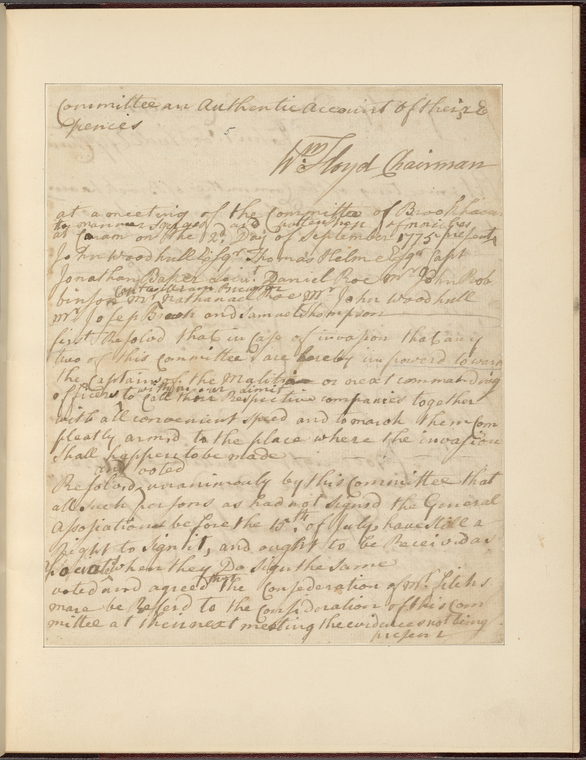 Committee an Authentic Account of their Ex
pences
5
Wm Floyd Chairman
at a meeting of the Committee of Brookhaven
to manner of and
at Coram on the 12d Day of September 1775 present
John Woodhull Esqr Thomas Helme Esqr Capt
Jonathan Baker Daniel Roe Mr John Rob
Capt William Brewster
binson Mr Nathanael Roe Mr John Woodhull
Mr Josep Brown and Samuel Thompson
first Resolvd that in Case of invasion that any
two of this Committee are hereby impowerd to warn
the Captains of the Malitia or next commanding
officers to Call their Respective companies together
with all convenient speed and to march them Com
pleatly armd to the place where the invasion
Shall happen to be made
and voted
Resolvd unanimously by this Committee that
all such persons as had not signed the General
Asosiation before the 15th of July have still a
Right to sign it, and ought to be Receivd as
when they Do sign the same
voted and agreed that the Consederation of Mr Fitchs
mare be Referd to the Consideration of this Com
mittee at their next meeting the evidences not being
present